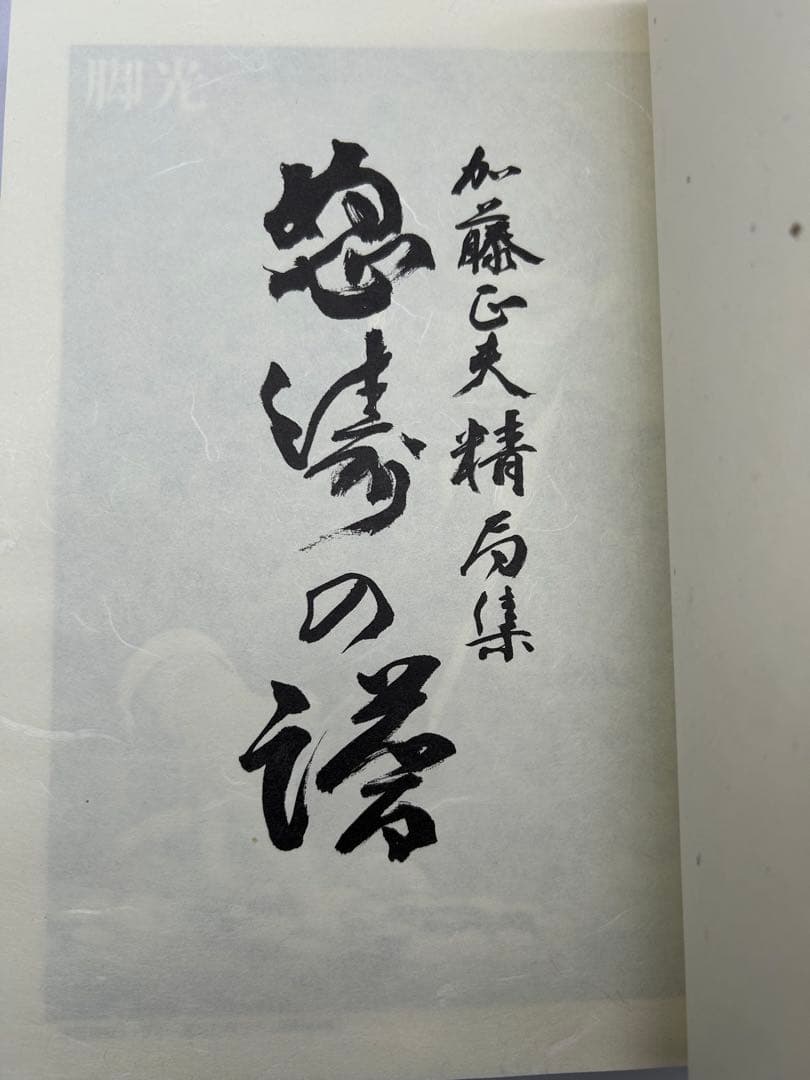 脚光
加藤正夫精局集
怒涛の譜